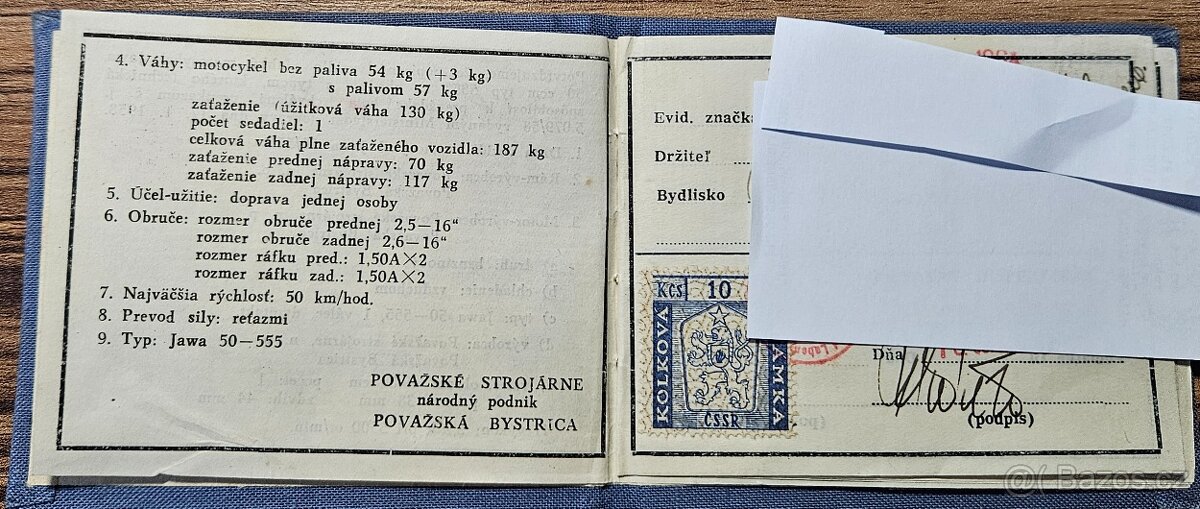 4. Váhy: motocykel bez paliva 54 kg (+3 kg)
s palivom 57 kg
zaťaženie (úžitková váha 130 kg)
počet sedadiel: 1
celková váha plne zaťaženého vozidla: 187 kg
zaťaženie prednej nápravy: 70 kg
zaťaženie zadnej nápravy: 117 kg
5. Účel-užitie: doprava jednej osoby
6. Obruče: rozmer obruče prednej 2,5—16“
rozmer obruče zadnej 2,6—16“
rozmer ráfku pred.: 1,50A×2
rozmer ráfku zad.: 1,50A×2
7. Najväčšia rýchlosť: 50 km/hod.
8. Prevod sily: reťazmi
9. Typ: Jawa 50—555
POVAŽSKÉ STROJÁRNE
národný podnik
POVAŽSKÁ BYSTRICA
Evid. značka
Držiteľ
Bydlisko
Kčs 10
KOLKOVÁ
ČSSR
Dňa
(podpis)
Bazos.cz